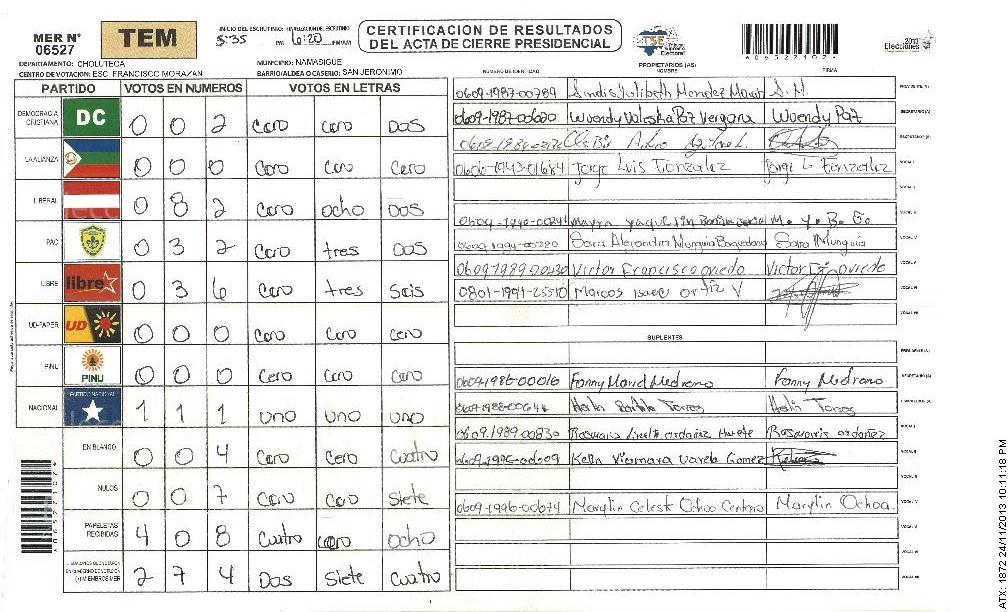 MER N° 06527
TEM
INICIO DEL ESCRUTINIO: FINALIZACION DE ESCRUTINIO
5:35 PM 6:20 PM/AM
CERTIFICACION DE RESULTADOS
DEL ACTA DE CIERRE PRESIDENCIAL
TSE
Electoral
2013
Elecciones
DEPARTAMENTO: CHOLUTECA
MUNICIPIO: NAMASIGUE
CENTRO DE VOTACION: ESC. FRANCISCO MORAZAN
BARRIO/ALDEA O CASERIO: SAN JERONIMO
PROPIETARIOS (AS)
NUMERO DE IDENTIDAD NOMBRE FIRMA
PARTIDO VOTOS EN NUMEROS VOTOS EN LETRAS
DEMOCRACIA CRISTIANA DC 0 0 2 Cero cero Dos
LA ALIANZA 0 0 0 Cero Cero Cero
LIBERAL 0 8 2 Cero ocho Dos
PAC 0 3 2 Cero tres Dos
LIBRE libre 0 3 6 Cero tres Seis
UD-FAPER UD 0 0 0 Cero Cero Cero
PINU PINU 0 0 0 Cero Cero Cero
NACIONAL PARTIDO NACIONAL 1 1 1 uno uno uno
EN BLANCO 0 0 4 Cero Cero Cuatro
NULOS 0 0 7 Cero Cero Siete
PAPELETAS RECIBIDAS 4 0 8 Cuatro cero ocho
2 7 4 Dos Siete Cuatro
0609-1987-00789 Mendez S. M. PRESIDENTE (A)
0609-1987-00600 Wuendy Valeska Paz Vergara Wuendy Paz SECRETARIO (A)
ESCRUTADOR (A)
0606-1943-01684 Jorge Luis Gonzalez Jorge L Gonzalez VOCAL I
VOCAL II
Mayra M. Y. B. G. VOCAL III
Sara Alejandra Murguia Baquedano Sara Munguia VOCAL IV
0609 1989-00430 Victor Francisco oviedo Victor F. oviedo VOCAL V
0801-1991-25510 Marcos Isaac ortiz V VOCAL VI
VOCAL VII
SUPLENTES
PRESIDENTE (A)
0609-1986-00016 Fanny Mariel Medrano Fanny Medrano SECRETARIO (A)
Torres Torres ESCRUTADOR (A)
0609.1989-00830 ordoñez ordoñez VOCAL I
Kelin Xiomara Varela Gomez VOCAL II
VOCAL III
0609-1996-00674 Marylin Celeste Ochoa Centeno Marylin Ochoa. VOCAL IV
VOCAL V
VOCAL VI
VOCAL VII
ATX: 1872 24/11/2013 10:11:18 PM